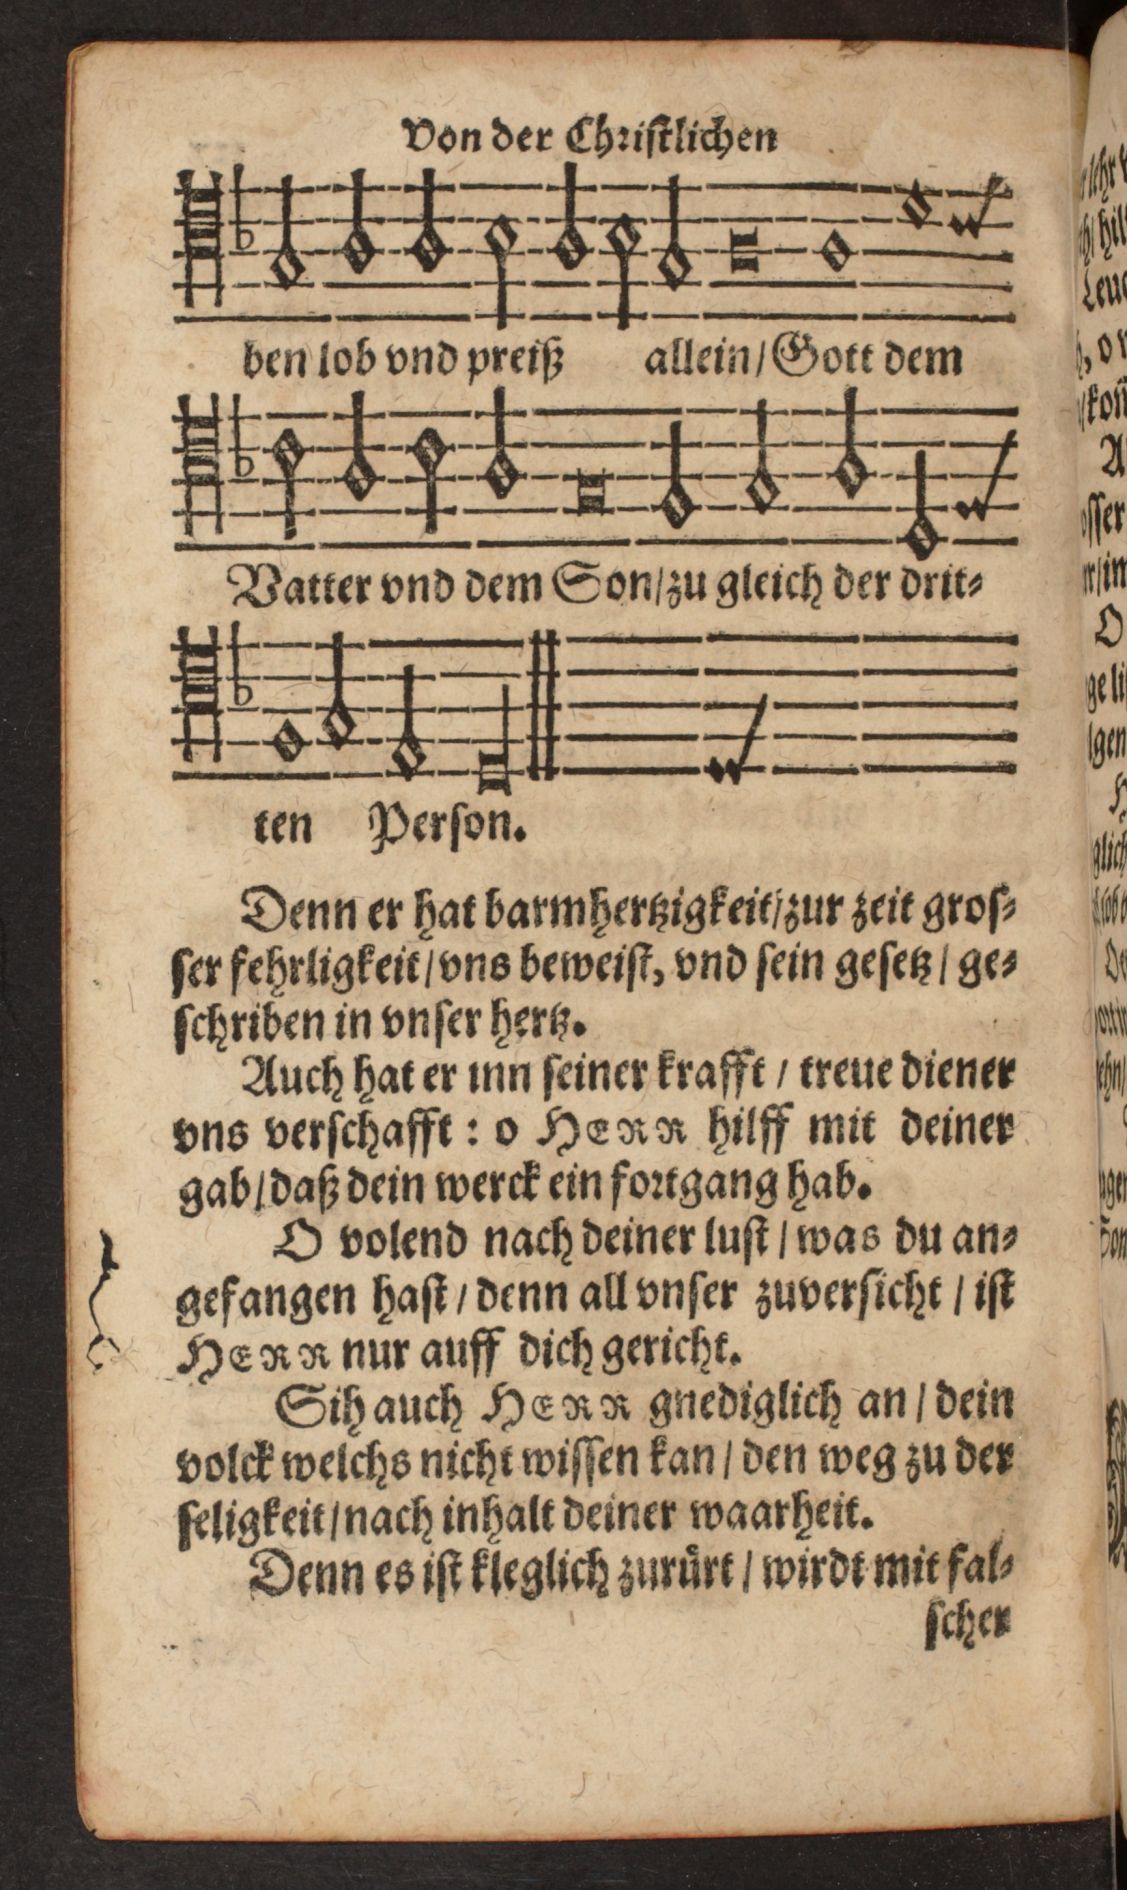 Von der Christlichen
ben lob vnd preiß allein/ Gott dem
Vatter vnd dem Son/ zu gleich der drit⸗
ten Person.
Denn er hat barmhertzigkeit/ zur zeit gros⸗
ser fehrligkeit/ vns beweist, vnd sein gesetz/ ge⸗
schriben in vnser hertz.
Auch hat er inn seiner krafft/ treue diener
vns verschafft: o HERR hilff mit deiner
gab/ daß dein werck ein fortgang hab.
O volend nach deiner lust/ was du an⸗
gefangen hast/ denn all vnser zuversicht/ ist
HERR nur auff dich gericht.
Sih auch HERR gnediglich an/ dein
volck welchs nicht wissen kan/ den weg zu der
seligkeit/ nach inhalt deiner waarheit.
Denn es ist kleglich zurůrt/ wirdt mit fal⸗
scher